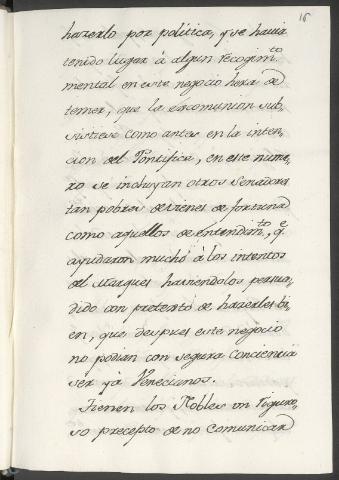 16
hazerlo por política, y se havia
tenido lugar à algun recogim.to
mental en este negocio hera de
temer, que la excomunion sub,
sistiese como antes en la inten,
cion del Pontifice, en este nume,
ro se incluyan otros Senadores
tan pobres de vienes de fortuna
como aquellos de entendim.to, q.e
ayudaron mucho à los intentos
del Marques haviendolos persua,
dido con pretexto de hazerles bi,
en, que despues este negocio
no podian con segura conciencia
ser yà Venecianos.
Tienen los Nobles un riguro,
so precepto de no comunicar